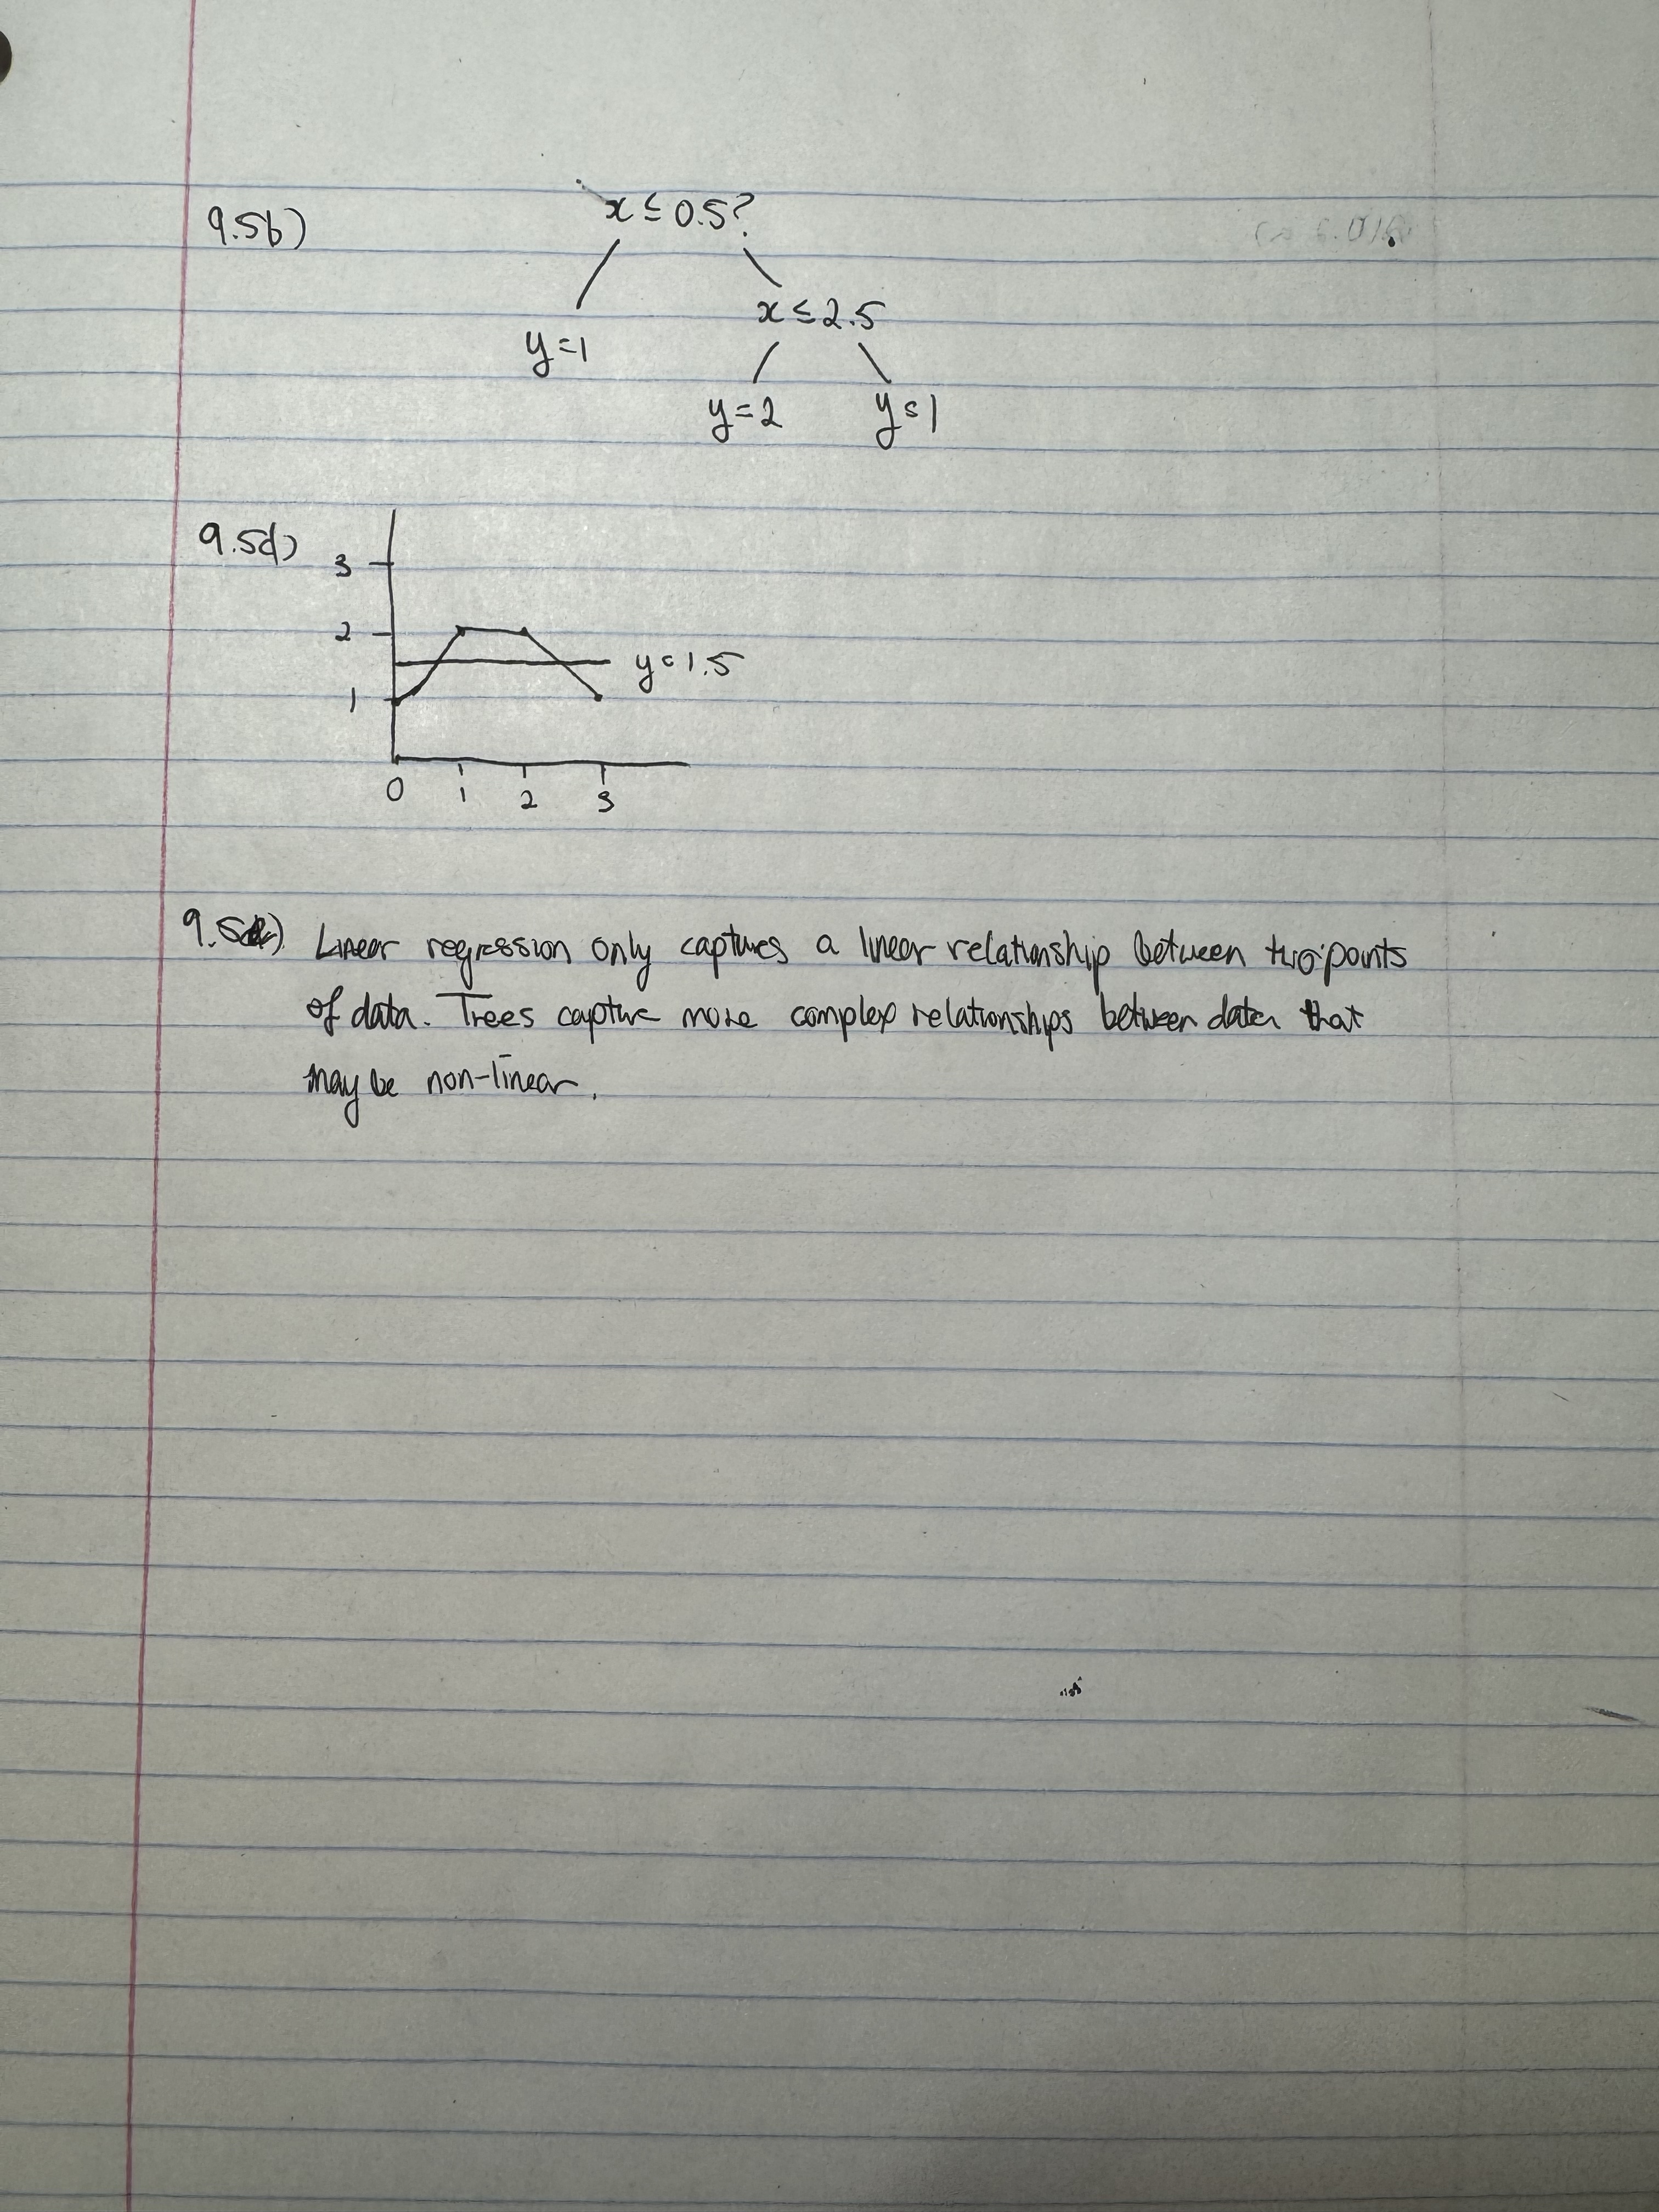 9.5b)
x ≤ 0.5?
x ≤ 2.5
y=1
y=2 y=1
9.5d)
3
2
y=1.5
1
0 1 2 3
Linear regression only captures a linear relationship between two points
of data. Trees capture more complex relationships between data that
may be non-linear.